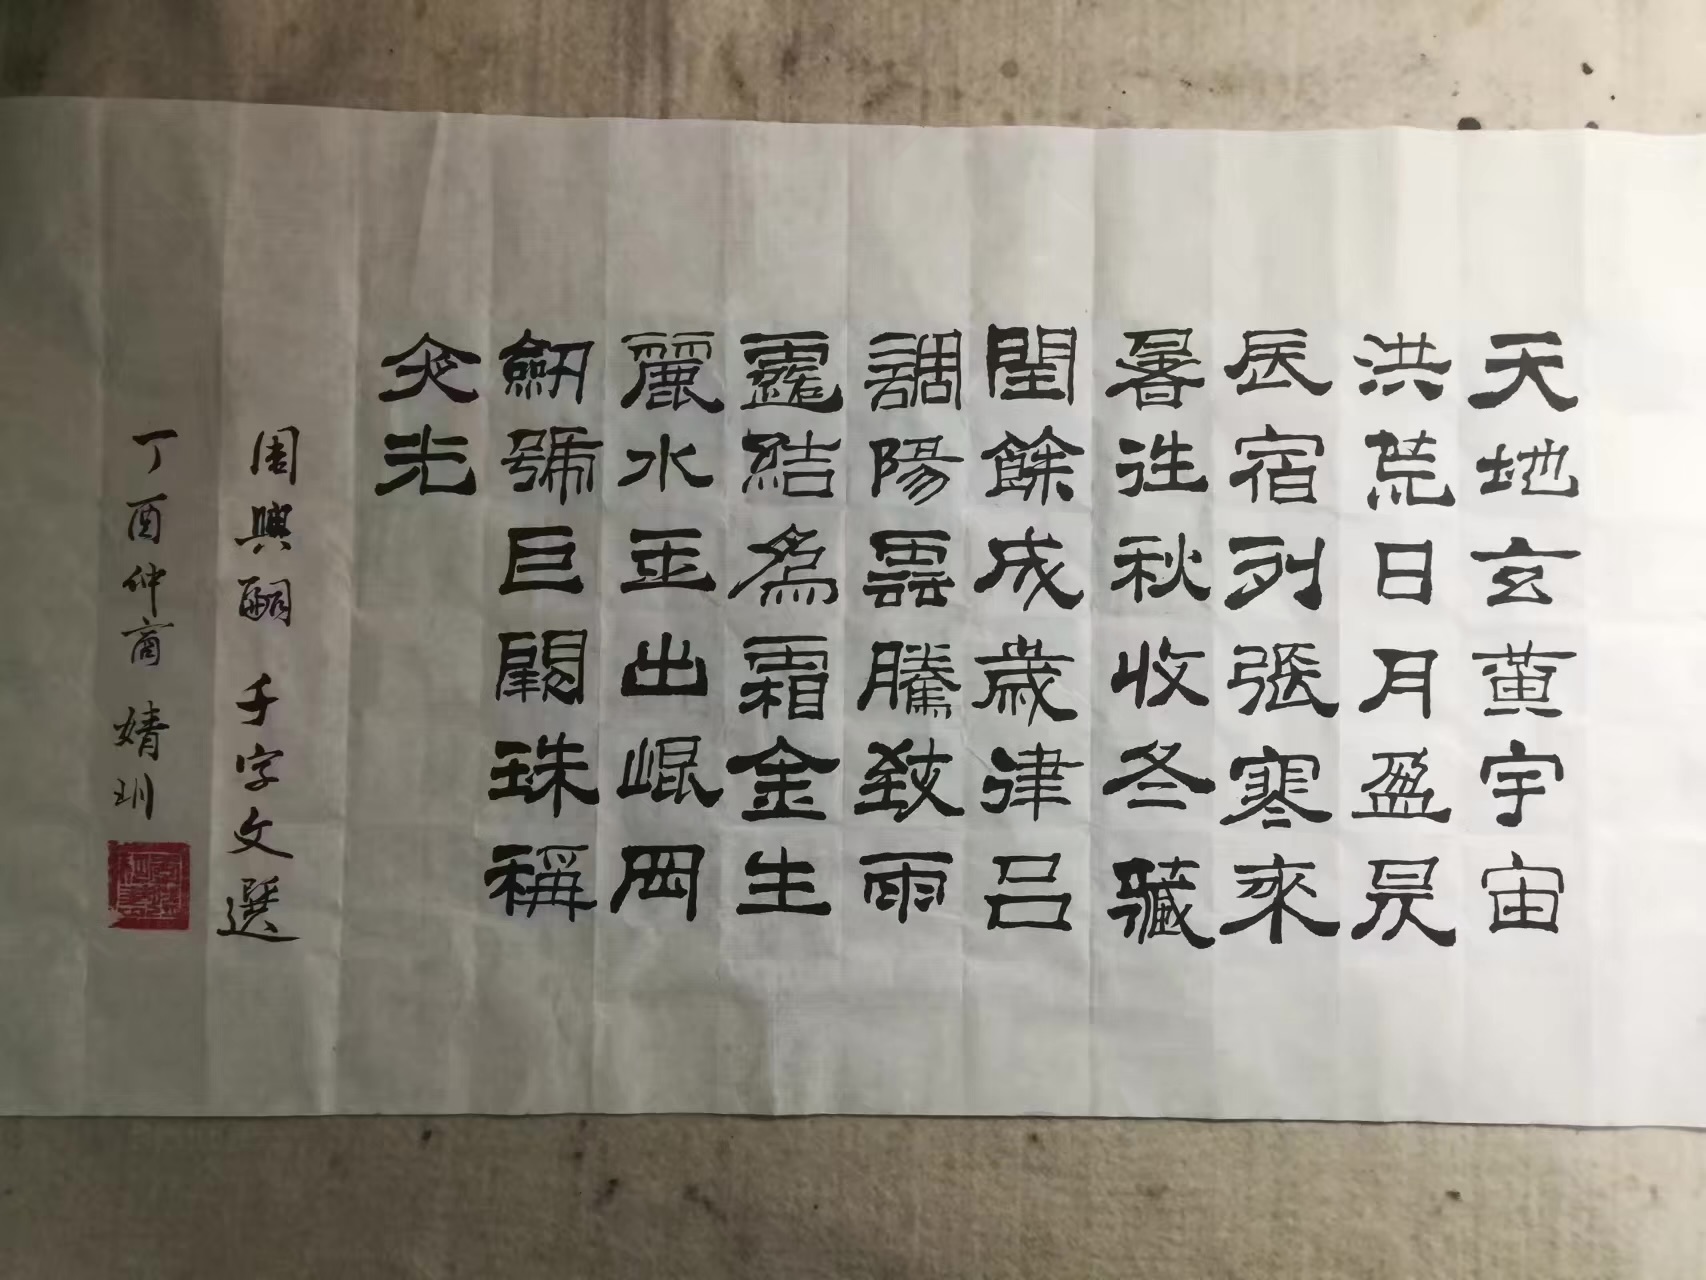 天地玄黃宇宙
洪荒日月盈昃
辰宿列張寒來
暑往秋收冬藏
閏餘成歲律呂
調陽雲騰致雨
露結為霜金生
麗水玉出崐岡
劒號巨闕珠稱
夜光
周興嗣 千字文選
丁酉仲商 婧玔